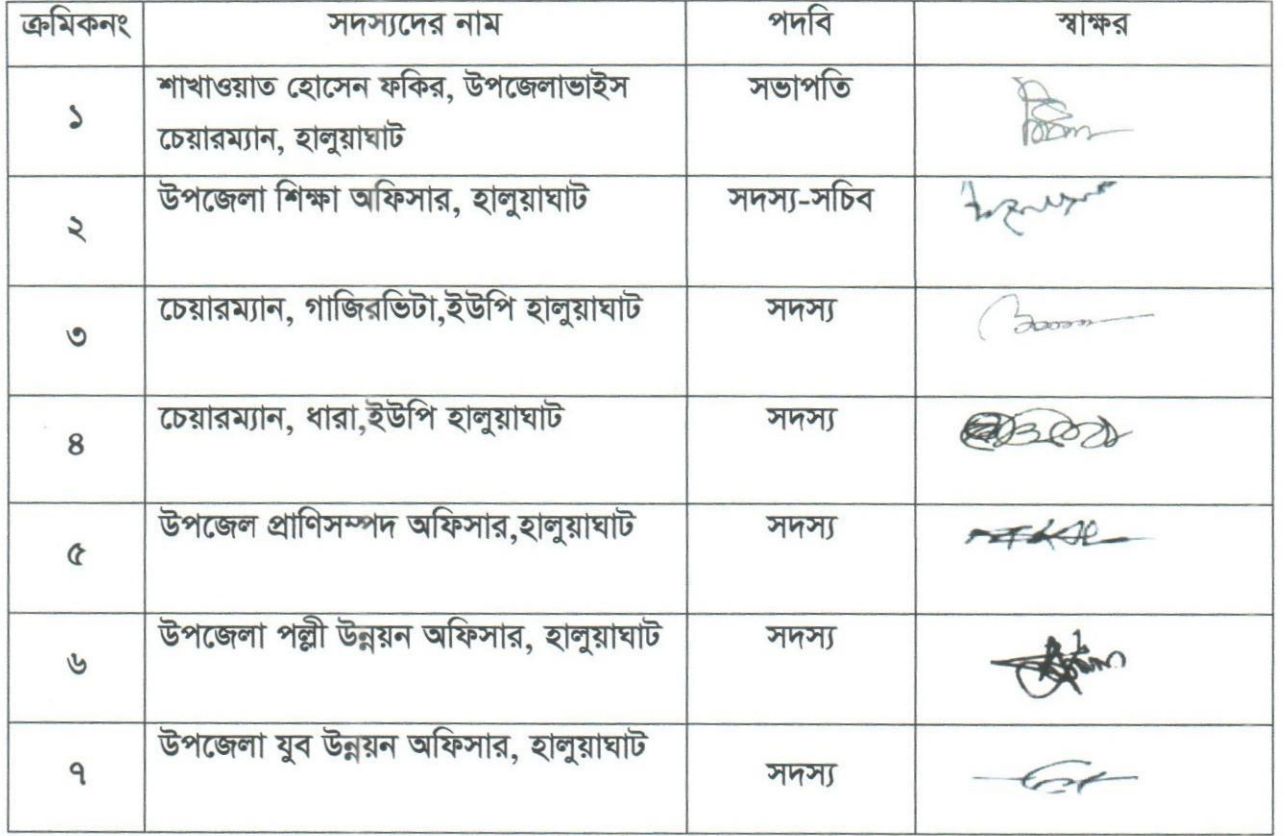 ক্রমিকনং সদস্যদের নাম পদবি স্বাক্ষর
১ শাখাওয়াত হোসেন ফকির, উপজেলাভাইস সভাপতি
চেয়ারম্যান, হালুয়াঘাট
২ উপজেলা শিক্ষা অফিসার, হালুয়াঘাট সদস্য-সচিব
৩ চেয়ারম্যান, গাজিরভিটা,ইউপি হালুয়াঘাট সদস্য
৪ চেয়ারম্যান, ধারা,ইউপি হালুয়াঘাট সদস্য
৫ উপজেল প্রাণিসম্পদ অফিসার,হালুয়াঘাট সদস্য
৬ উপজেলা পল্লী উন্নয়ন অফিসার, হালুয়াঘাট সদস্য
৭ উপজেলা যুব উন্নয়ন অফিসার, হালুয়াঘাট সদস্য